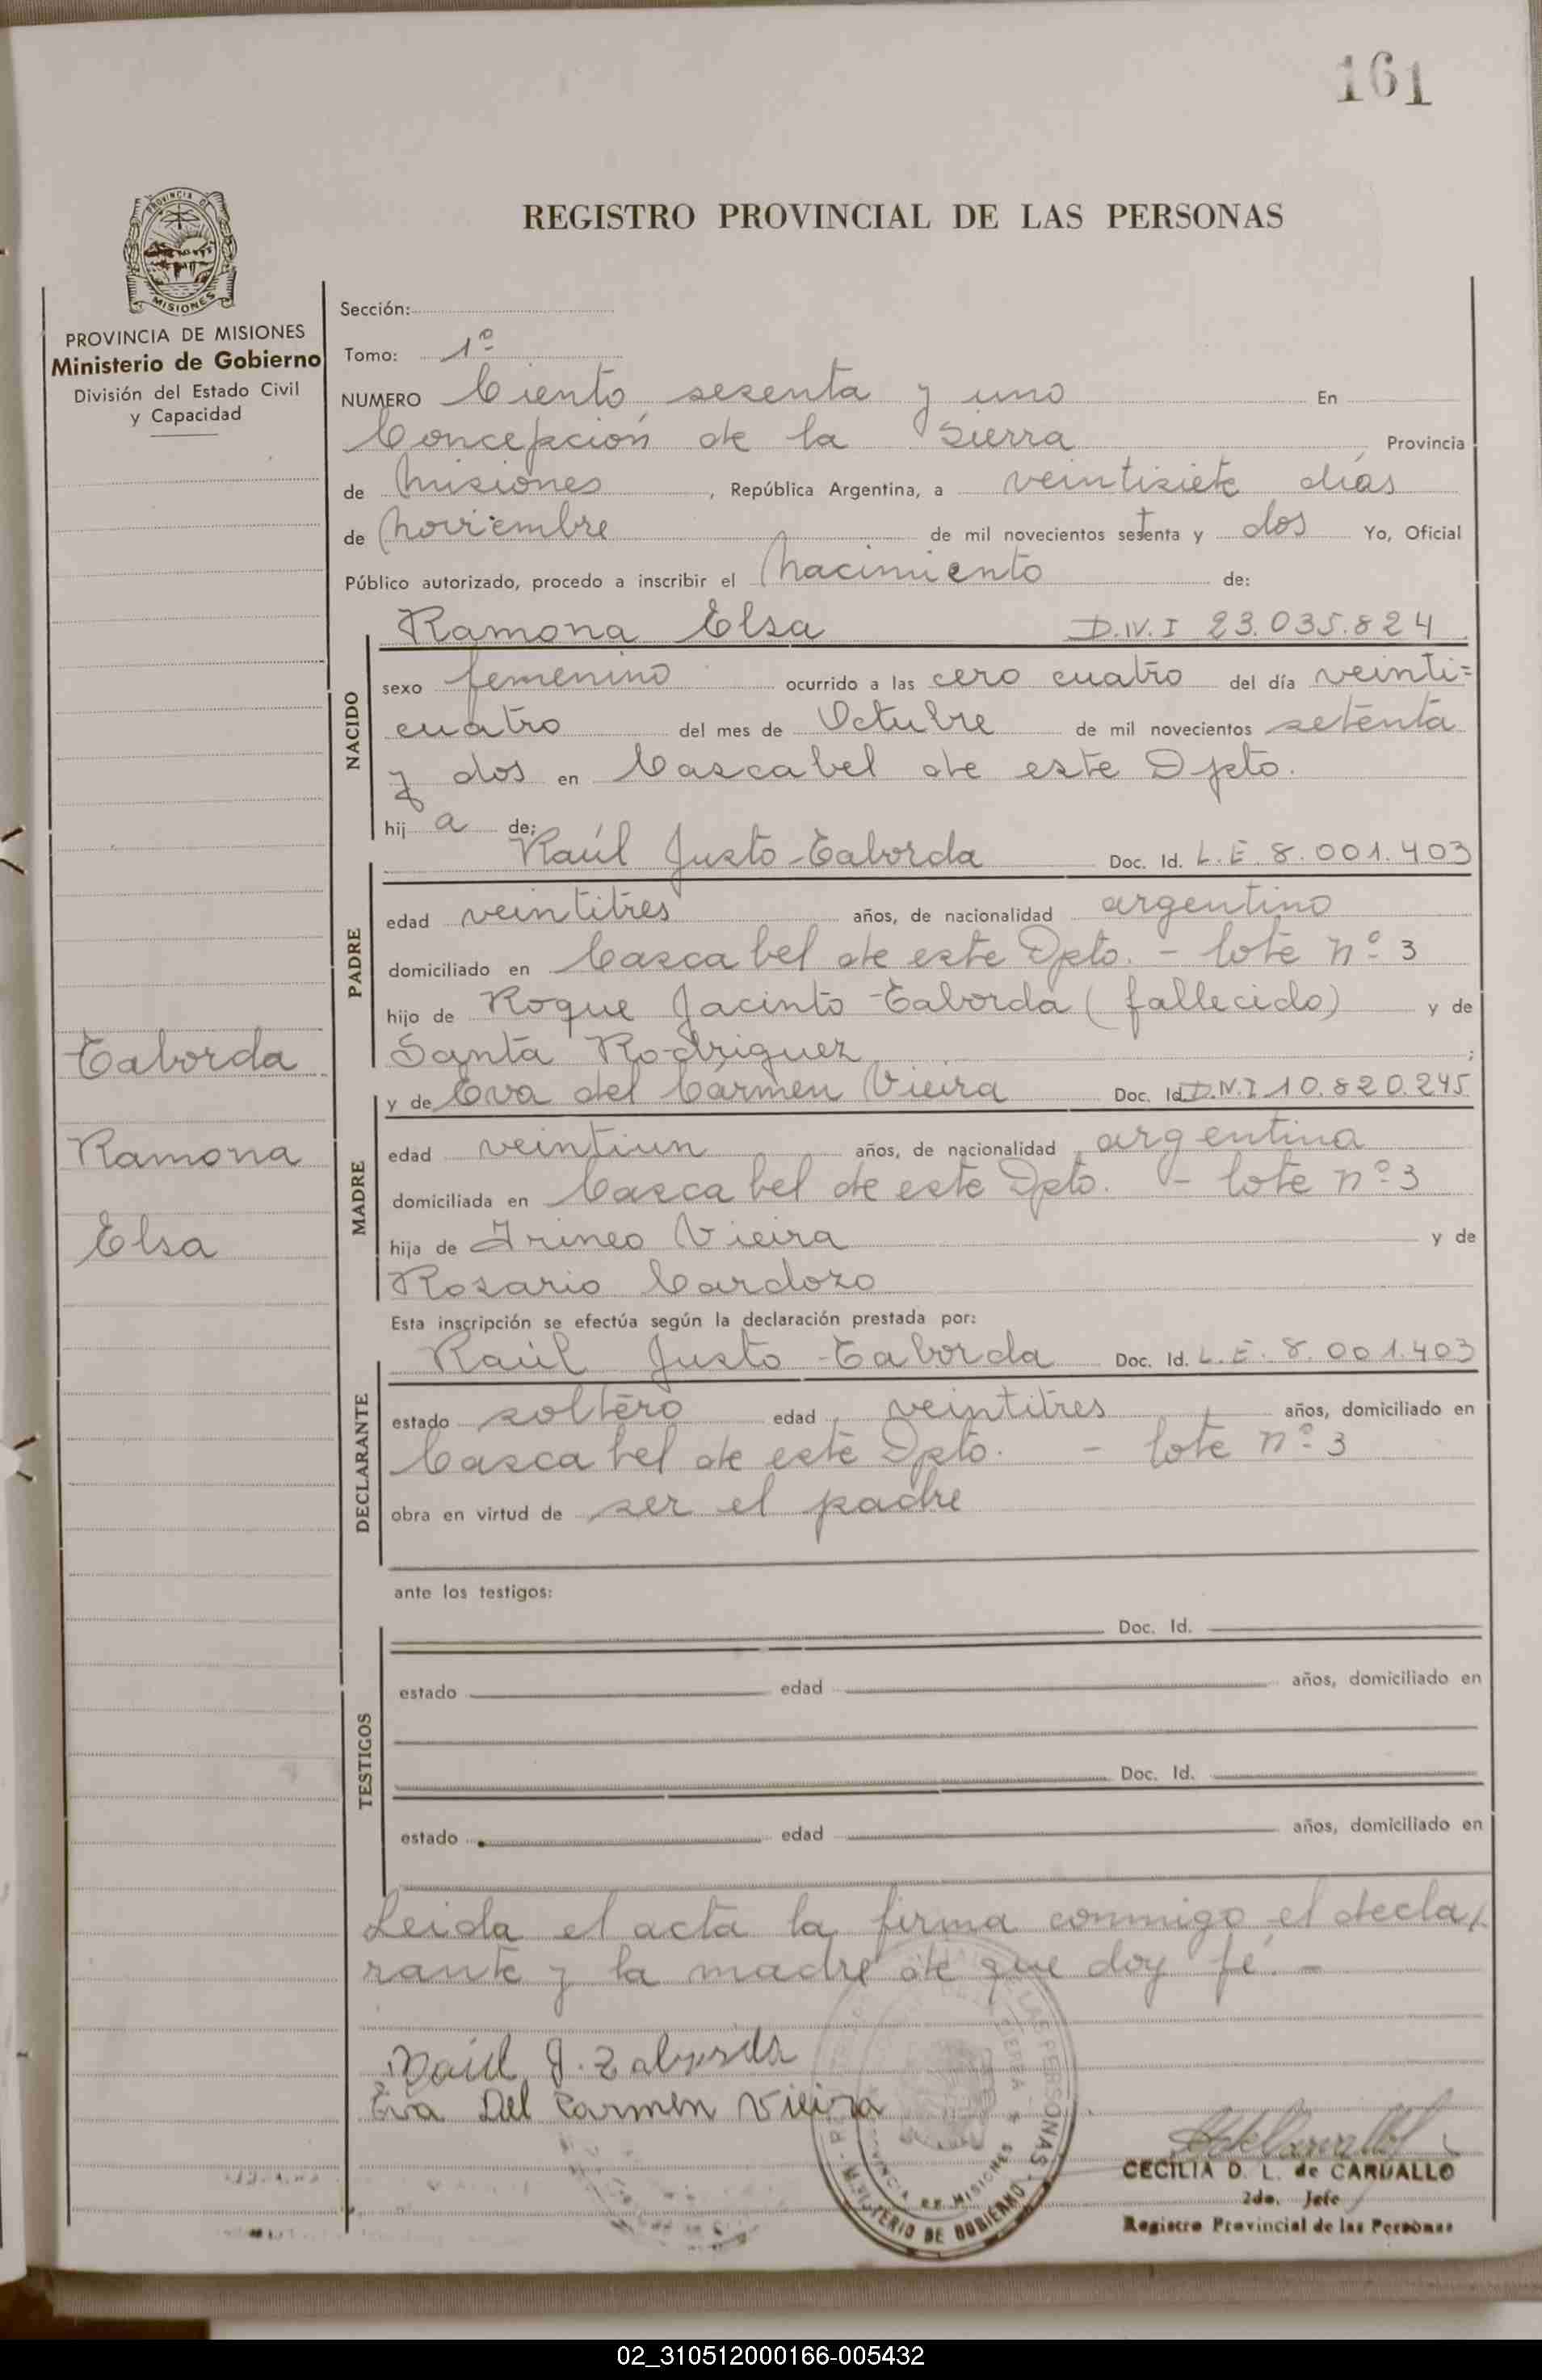 161
REGISTRO PROVINCIAL DE LAS PERSONAS
PROVINCIA DE
MISIONES
PROVINCIA DE MISIONES
Ministerio de Gobierno
División del Estado Civil
y Capacidad
Sección:
Tomo: 1º
NUMERO Ciento sesenta y uno En
Concepción de la Sierra Provincia
de Misiones, República Argentina, a veintisiete días
de noviembre de mil novecientos setenta y dos Yo, Oficial
Público autorizado, procedo a inscribir el nacimiento de:
NACIDO
Ramona Elsa D.N.I 23.035.824
sexo femenino ocurrido a las cero cuatro del día veinti=
cuatro del mes de Octubre de mil novecientos setenta
y dos en Cascabel de este Dpto.
hij a de:
PADRE
Raúl Justo Taborda Doc. Id. L.E. 8.001.403
edad veintitres años, de nacionalidad argentino
domiciliado en Cascabel de este Dpto. - lote nº 3
hijo de Roque Jacinto Taborda (fallecido) y de
Santa Rodriguez ;
MADRE
y de Eva del Cármen Vieira Doc. Id. D.N.I 10.820.245
edad veintiun años, de nacionalidad argentina
domiciliada en Cascabel de este Dpto. - lote nº 3
hija de Irineo Vieira y de
Rosario Cardozo
Taborda
Ramona
Elsa
Esta inscripción se efectúa según la declaración prestada por:
DECLARANTE
Raúl Justo Taborda Doc. Id. L.E. 8.001.403
estado soltero edad veintitres años, domiciliado en
Cascabel de este Dpto. - lote nº 3
obra en virtud de ser el padre
ante los testigos:
TESTIGOS
Doc. Id.
estado edad años, domiciliado en
Doc. Id.
estado edad años, domiciliado en
Leida el acta la firma conmigo el decla/
rante y la madre de que doy fé. -
Raúl J. Taborda
Eva Del Carmen Vieira
PERSONAS
PROVINCIA DE MISIONES
MINISTERIO DE GOBIERNO
CECILIA D. L. de CARVALLO
2do. Jefe
Registro Provincial de las Personas
02_310512000166-005432